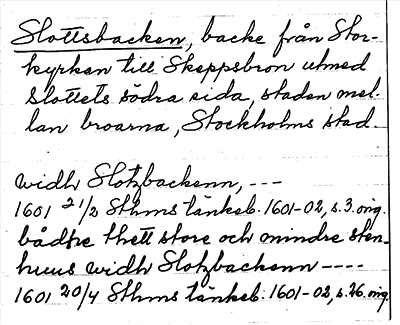 Slottsbacken, backe från Stor-
kyrkan till Skeppsbron utmed
Slottets södra sida, staden mel-
lan broarna, Stockholms stad.
widh Slotzbackenn, ---
1601 21/2 Sthms tänkeb. 1601-02, s. 3. orig.
bådhe thett store och mindre sten-
huus widh Slotzbackenn ----
1601 20/4 Sthms tänkeb. 1601-02, s. 26. orig.